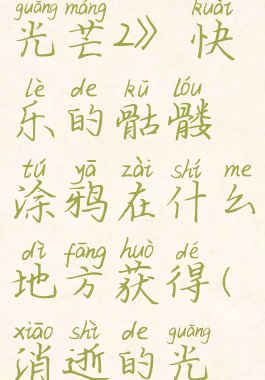 guāng máng kuài
光芒2》 快
lè de kū lóu
乐的骷髅
tú yā zài shí me
涂鸦在什么
dì fāng huò dé
地方获得(
xiāo shì de guāng
消逝的光